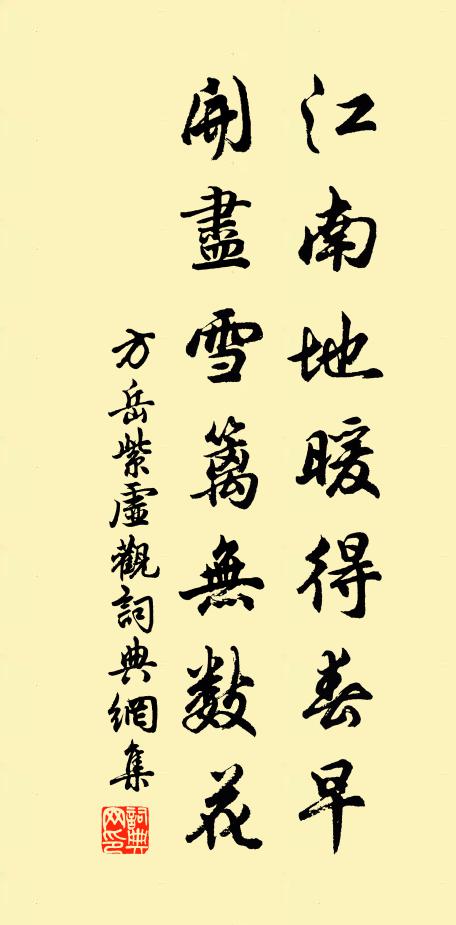 江南地暖得春早
開盡雪籬無數花
方岳紫虛觀詞典網集
詞典网印